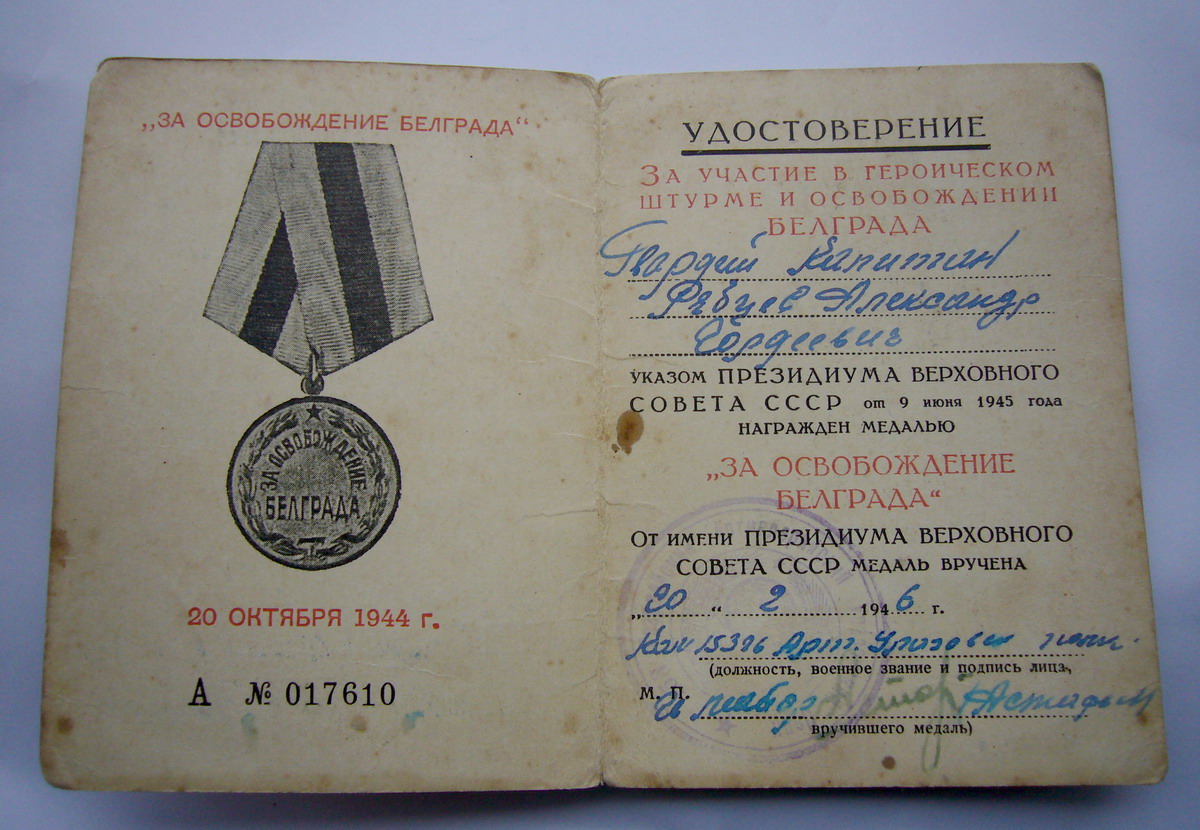 „ЗА ОСВОБОЖДЕНИЕ БЕЛГРАДА“
ЗА ОСВОБОЖДЕНИЕ
БЕЛГРАДА
20 ОКТЯБРЯ 1944 г.
А № 017610
УДОСТОВЕРЕНИЕ
ЗА УЧАСТИЕ В ГЕРОИЧЕСКОМ
ШТУРМЕ И ОСВОБОЖДЕНИИ
БЕЛГРАДА
Гвардии Капитан
Рябцев Александр
Гордеевич
УКАЗОМ ПРЕЗИДИУМА ВЕРХОВНОГО
СОВЕТА СССР от 9 июня 1945 года
НАГРАЖДЕН МЕДАЛЬЮ
„ЗА ОСВОБОЖДЕНИЕ
БЕЛГРАДА“
ОТ ИМЕНИ ПРЕЗИДИУМА ВЕРХОВНОГО
СОВЕТА СССР МЕДАЛЬ ВРУЧЕНА
„20“ 2 1946 г.
Арт.
(должность, военное звание и подпись лица,
М. П.
вручившего медаль)